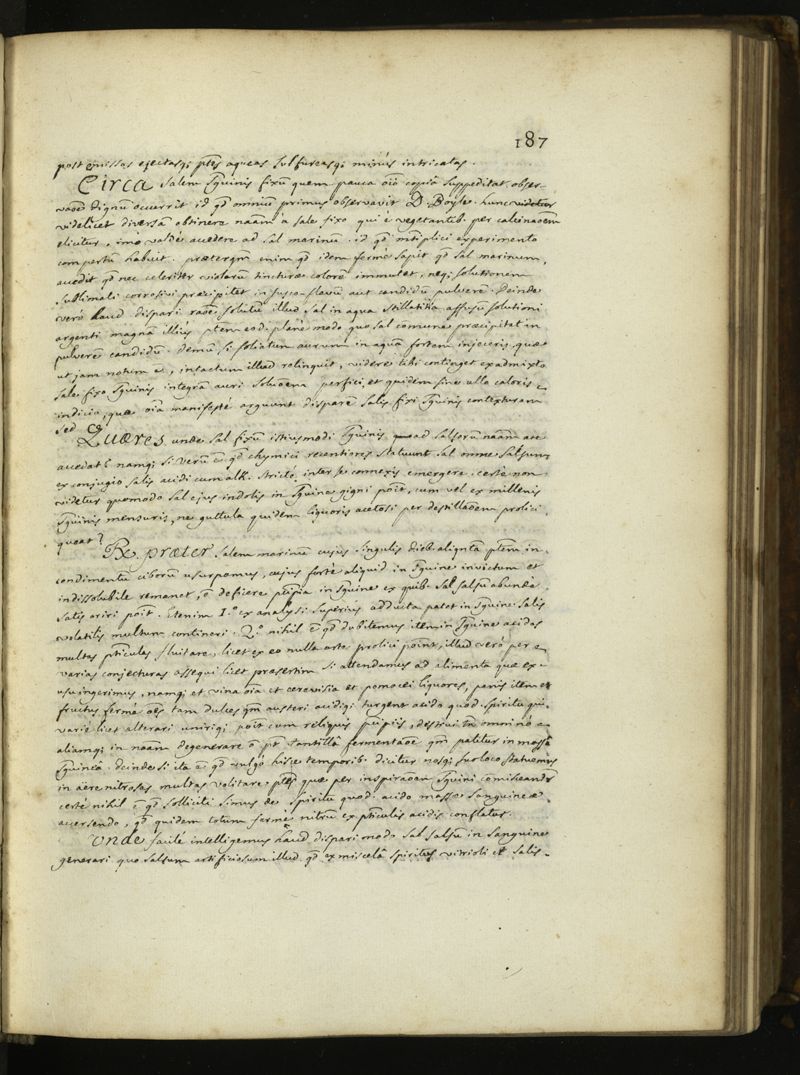 187
post emissas ejectasq; ptes aqueas sulfureasq; minus intricatas.
Circa salem sguinis fixũ quem pauca oĩo copia suppeditat obser-
vaõe dignũ occurrit id qd omniũ primus observavit D. Boyle. hunc
videlicet diversã obtinere naãm à sale fixo qui è vegetantib. per calcinaõem
elicitur, imò valdè accedere ad sal marinum. id qd mtiplici experimento
compertũ habuit. præterqm enim qd idem fermè sapit qd sal marinum,
accedit qd nec celeriter violarũ tincturæ colorẽ immutet, neq; solutionem
sublimati corrosivi præcipitet in fusco-flavũ aut candidũ pulverẽ. Deinde
verò haud dispari raõe solutũ illud sal in aqua stillatitia affusũ solutioni
argenti magnã illius ptem eod. planè modo quo sal comune præcipitat in
pulverẽ candidũ. demũ si foliatum aurum in aquã fortem injeceris, quæ
ut jam notum ẽ, intactum illud relinquit, videre tibi continget ex admixto
sale fixo sguinis integrã auri soluõem perfici, et quidem sine ullo caloris
indicio, quæ oĩa manifestè arguunt disparẽ salis fixi sguinis contexturam
Sed Quæres unde sal fixũ istiusmodi sguinis ad salsorũ naãm
accedat? namq; si verũ ẽ qd chymici recentiores statuunt sal omne salsum
ex conjugio salis acidi cum alk. strictò inter se connexis emergere. certè non
videtur quomodo sal ejus indolis in sguine gigni põit, cum vel ex millenis
sguinis mensuris, ne guttula quidem liquoris acetosi per destillaõem prolici
queat?
Rx. præter salem marinum cujus singulis dieb. aliqntã ptem in
condimentũ ciborũ usurpamus, cujus fortè aliquid in sguine invictum et
indissolubile remanet, õ deficere pcipia in sguine ex quib. sal salsũ abundè
satis oriri põit. Etenim 1.º ex analysi superius adducta patet in sguine salis
volatilis multum contineri. 2.º nihil ẽ qd dubitemus item in sguine acidas
multas pticulas fluitare, licet ex eo nulla arte prolici põint, illud verò per
varias conjecturas assequi licet præsertim si attendamus ad alimenta quæ ex
usu ingerimus, namq; et vina oĩa et cerevisia et pomacei liquores, panis item et
fructus fermè oẽs tam dulces qm austeri acidiq; turgent acido quod. spiritu qui
variè licet alterari uniriq; põit cum reliquis pcipiis, destrui tñ omninò
aliamq; in naãm degenerare õ pt tantillâ fermentaõe qm patitur in massa
sguinea. deinde si ita ẽ qd vulgò hisce temporib. dicitur nosq; suo loco statuemus
in aëre nitrosas multas volitare ptes quæ per inspiraõem sguini comisceantr
certè nihil ẽ qd solliciti simus de spiritu quod. acido massæ sanguineæ
accersendo, qd quidem totum fermè nitrũ ex pticulis acidis conflatur.
Unde facilè intelligemus haud dispari modo sal salsũ in sanguine
generari quo salsum artificiosum illud qd ex miscelâ spiritus vitrioli et salis